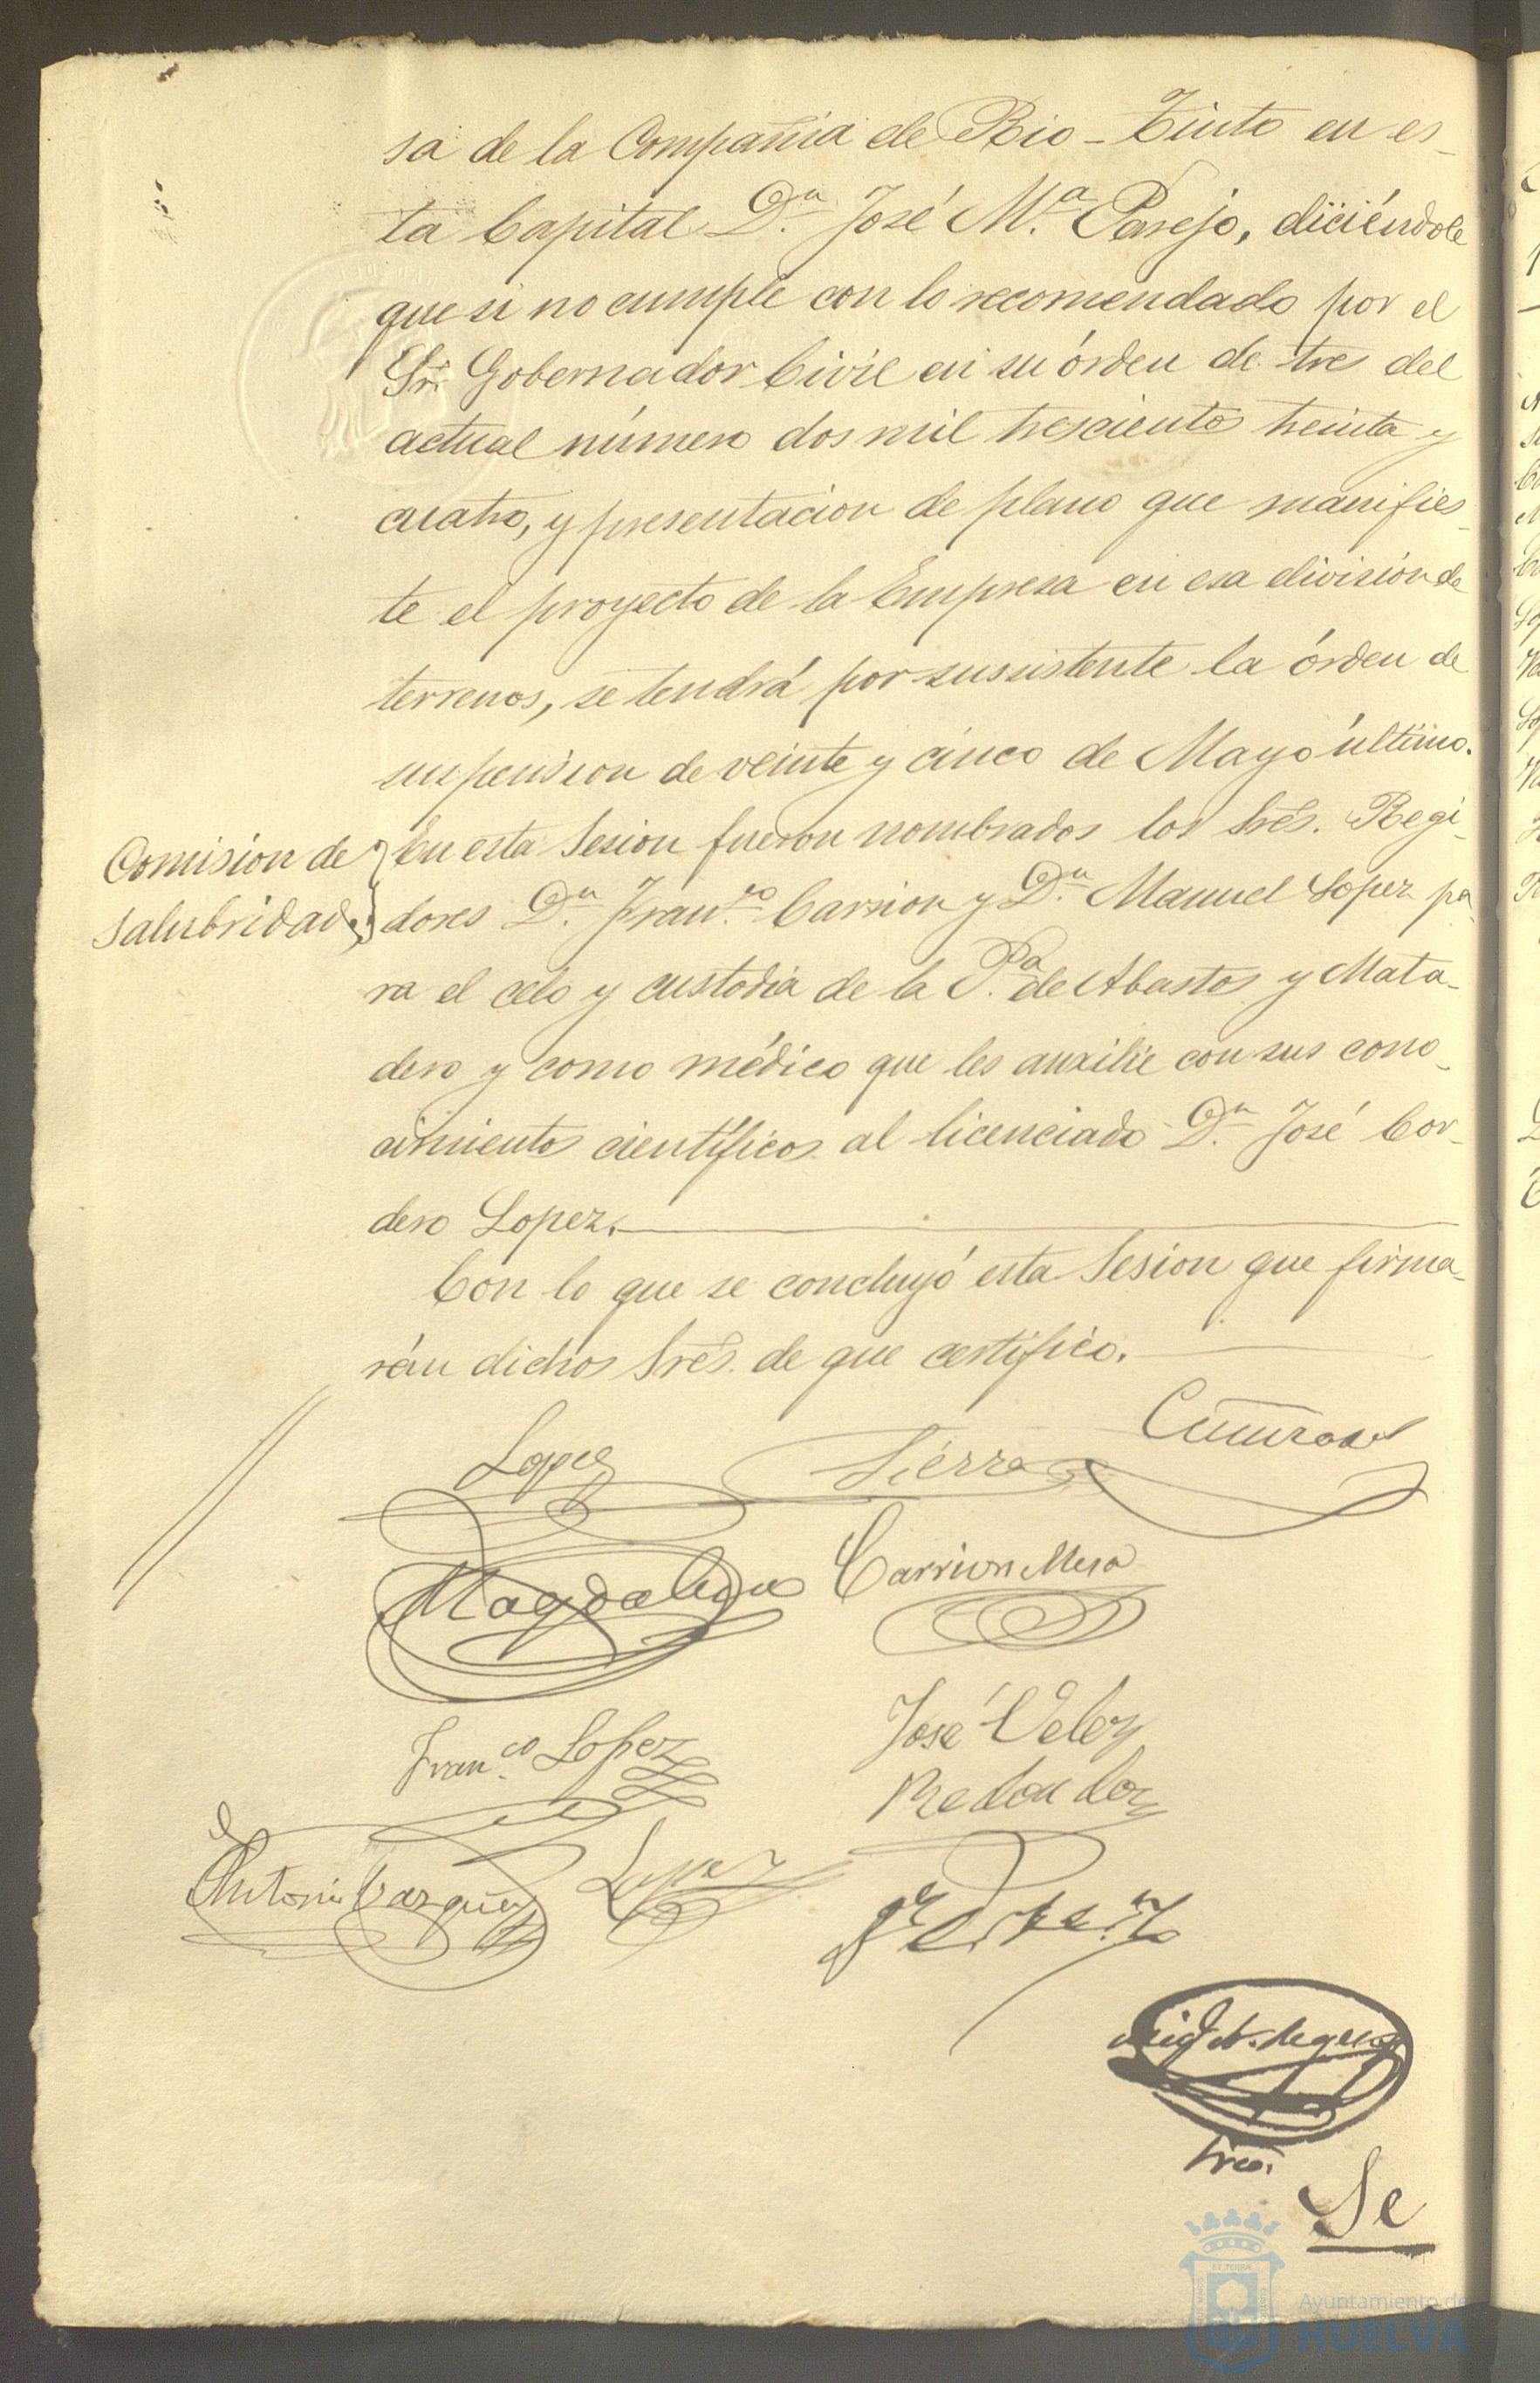 sa de la Compañia de Rio-Tinto en es-
ta Capital D.n José M.a Parejo, diciéndole
que si no cumple con lo recomendado por el
Sr. Gobernador Civil en su órden de tres del
actual número dos mil trescientos treinta y
cuatro, y presentacion de plano que manifies-
te el proyecto de la Empresa en esa división de
terrenos, se tendrá por sussistente la órden de
suspension de veinte y cinco de Mayo último.
Comision de
salubridad.
En esta Sesion fueron nombrados los Sres. Regi-
dores D.n Fran.co Carrion y D.n Manuel Lopez pa-
ra el celo y custodia de la P.a de Abastos y Mata-
dero y como médico que les auxilie con sus cono-
cimientos científicos al licenciado D.n José Cor-
dero Lopez.
Con lo que se concluyó esta Sesion que firma-
rán dichos Sres. de que certifico.
Lopez
Sierra
Magdaleno
Carrion Mesa
Fran.co Lopez
José Velez
Redondo
Antonio Vazquez
Lopez
Srio.
Se
Ayuntamiento de
HUELVA